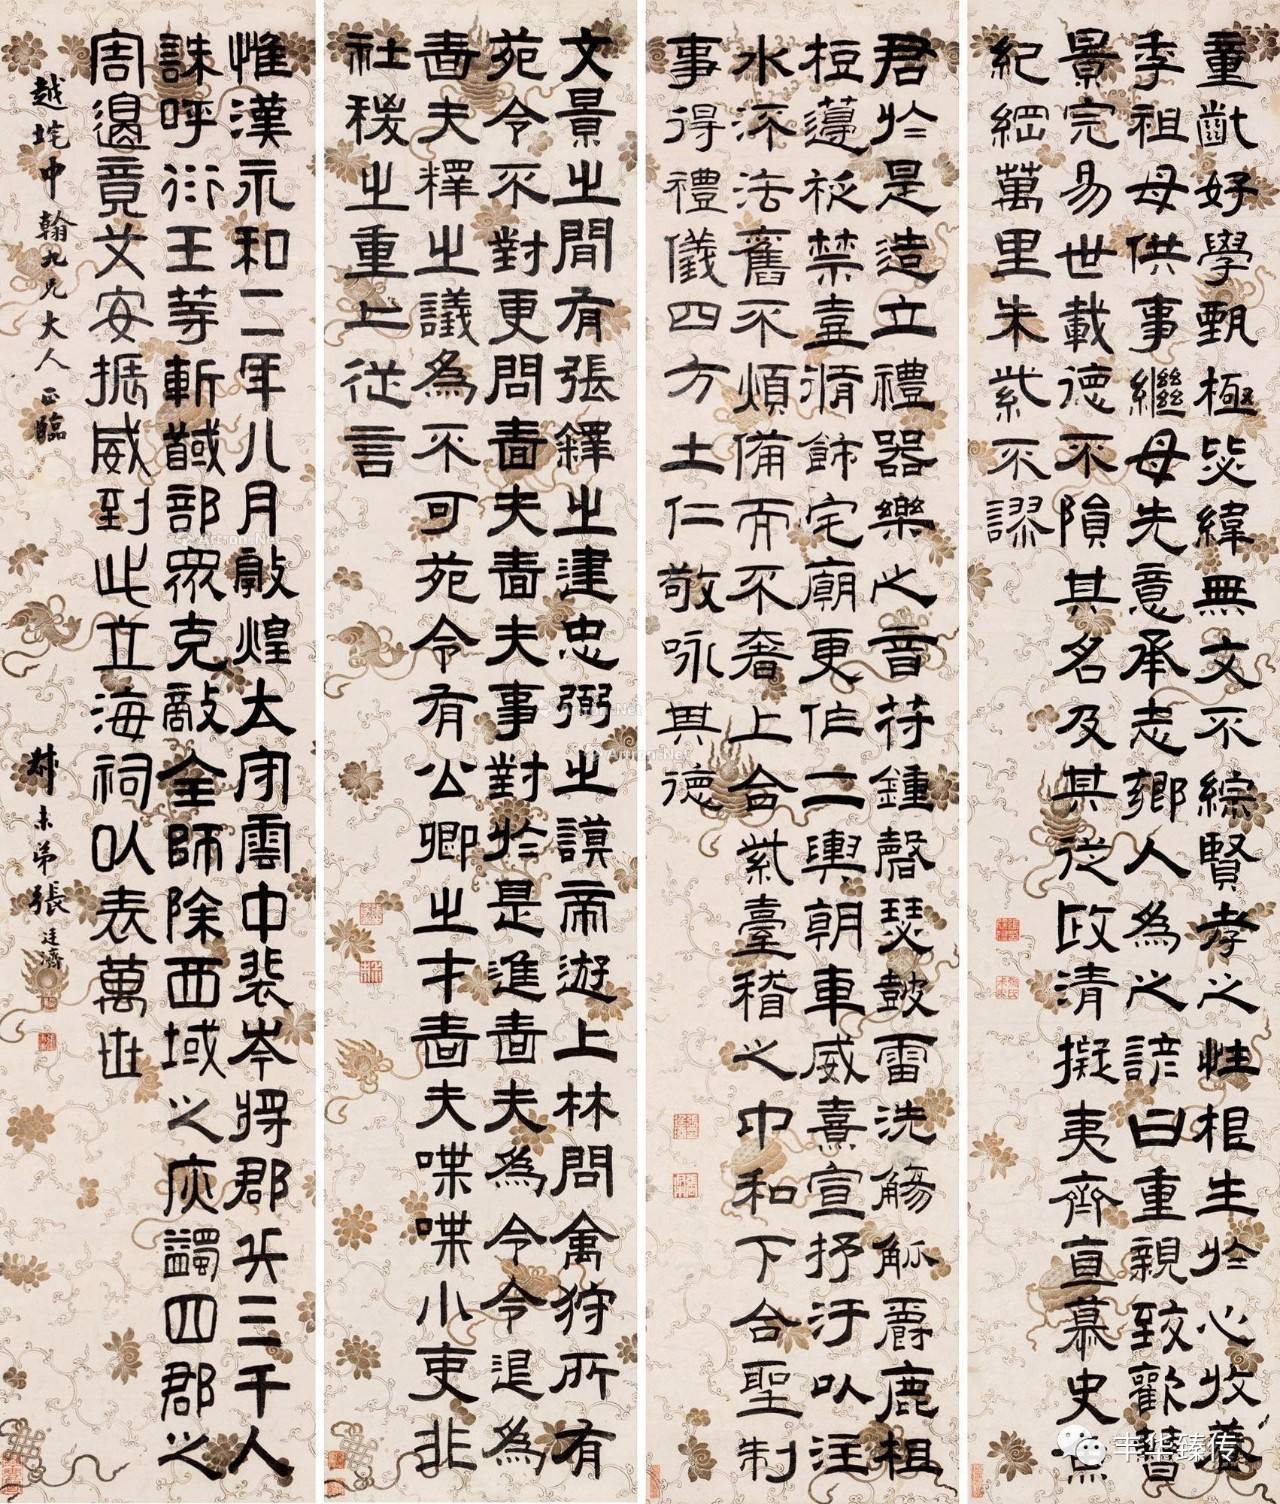 童齔好學甄極毖緯無文不綜賢孝之性根生於心收養
季祖母供事繼母先意承志鄉人為之諺曰重親致歡曹
景完易世載德不隕其名及其從政清擬夷齊直慕史魚
紀綱萬里朱紫不謬
君於是造立禮器樂之音符鍾磬瑟鼓雷洗觴觚爵鹿柤
梪籩柉禁壺脩飾宅廟更作二輿朝車威熹宣抒汙以注
水流法舊不煩備而不奢上合紫臺稽之中和下合聖制
事得禮儀四方土仁敬咏其德
文景之間有張釋之建忠弼之謨帝遊上林問禽狩所有
苑令不對更問嗇夫嗇夫事對於是進嗇夫為令令退為
嗇夫釋之議為不可苑令有公卿之才嗇夫喋喋小吏非
社稷之重上從言
惟漢永和二年八月敦煌太守雲中裴岑將郡兵三千人
誅呼衍王等斬馘部眾克敵全師除西域之疢蠲四郡之
害邊竟艾安振威到此立海祠以表萬世
越垞中翰九兄大人正臨
叔未弟張廷濟
Artron.Net
丰华臻传